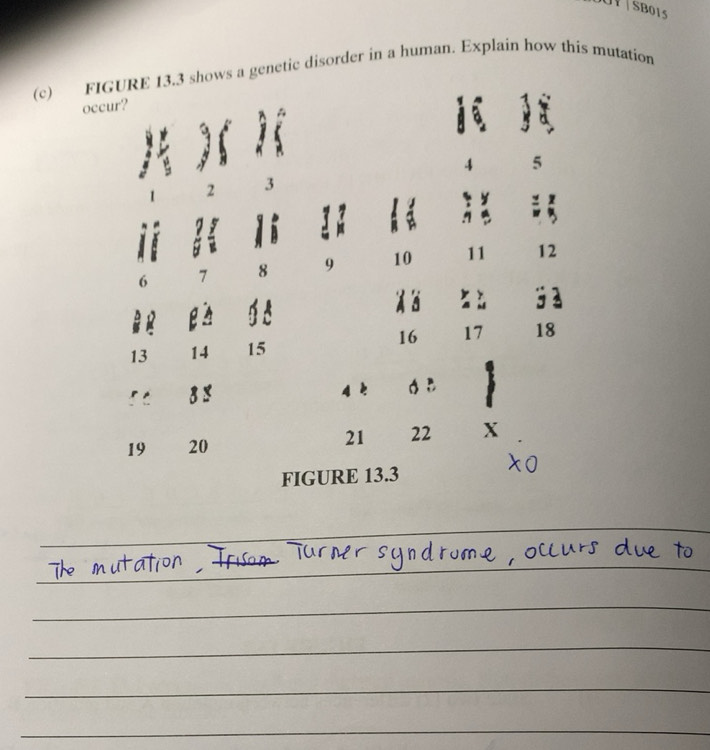 SB015
(c) FIGURE 13.3 shows a genetic disorder in a human. Explain how this mutation
occur?
1 2 3 4 5
6 7 8 9 10 11 12
13 14 15 16 17 18
19 20 21 22 X
XO
FIGURE 13.3
The mutation, Trisom Turner syndrome, occurs due to